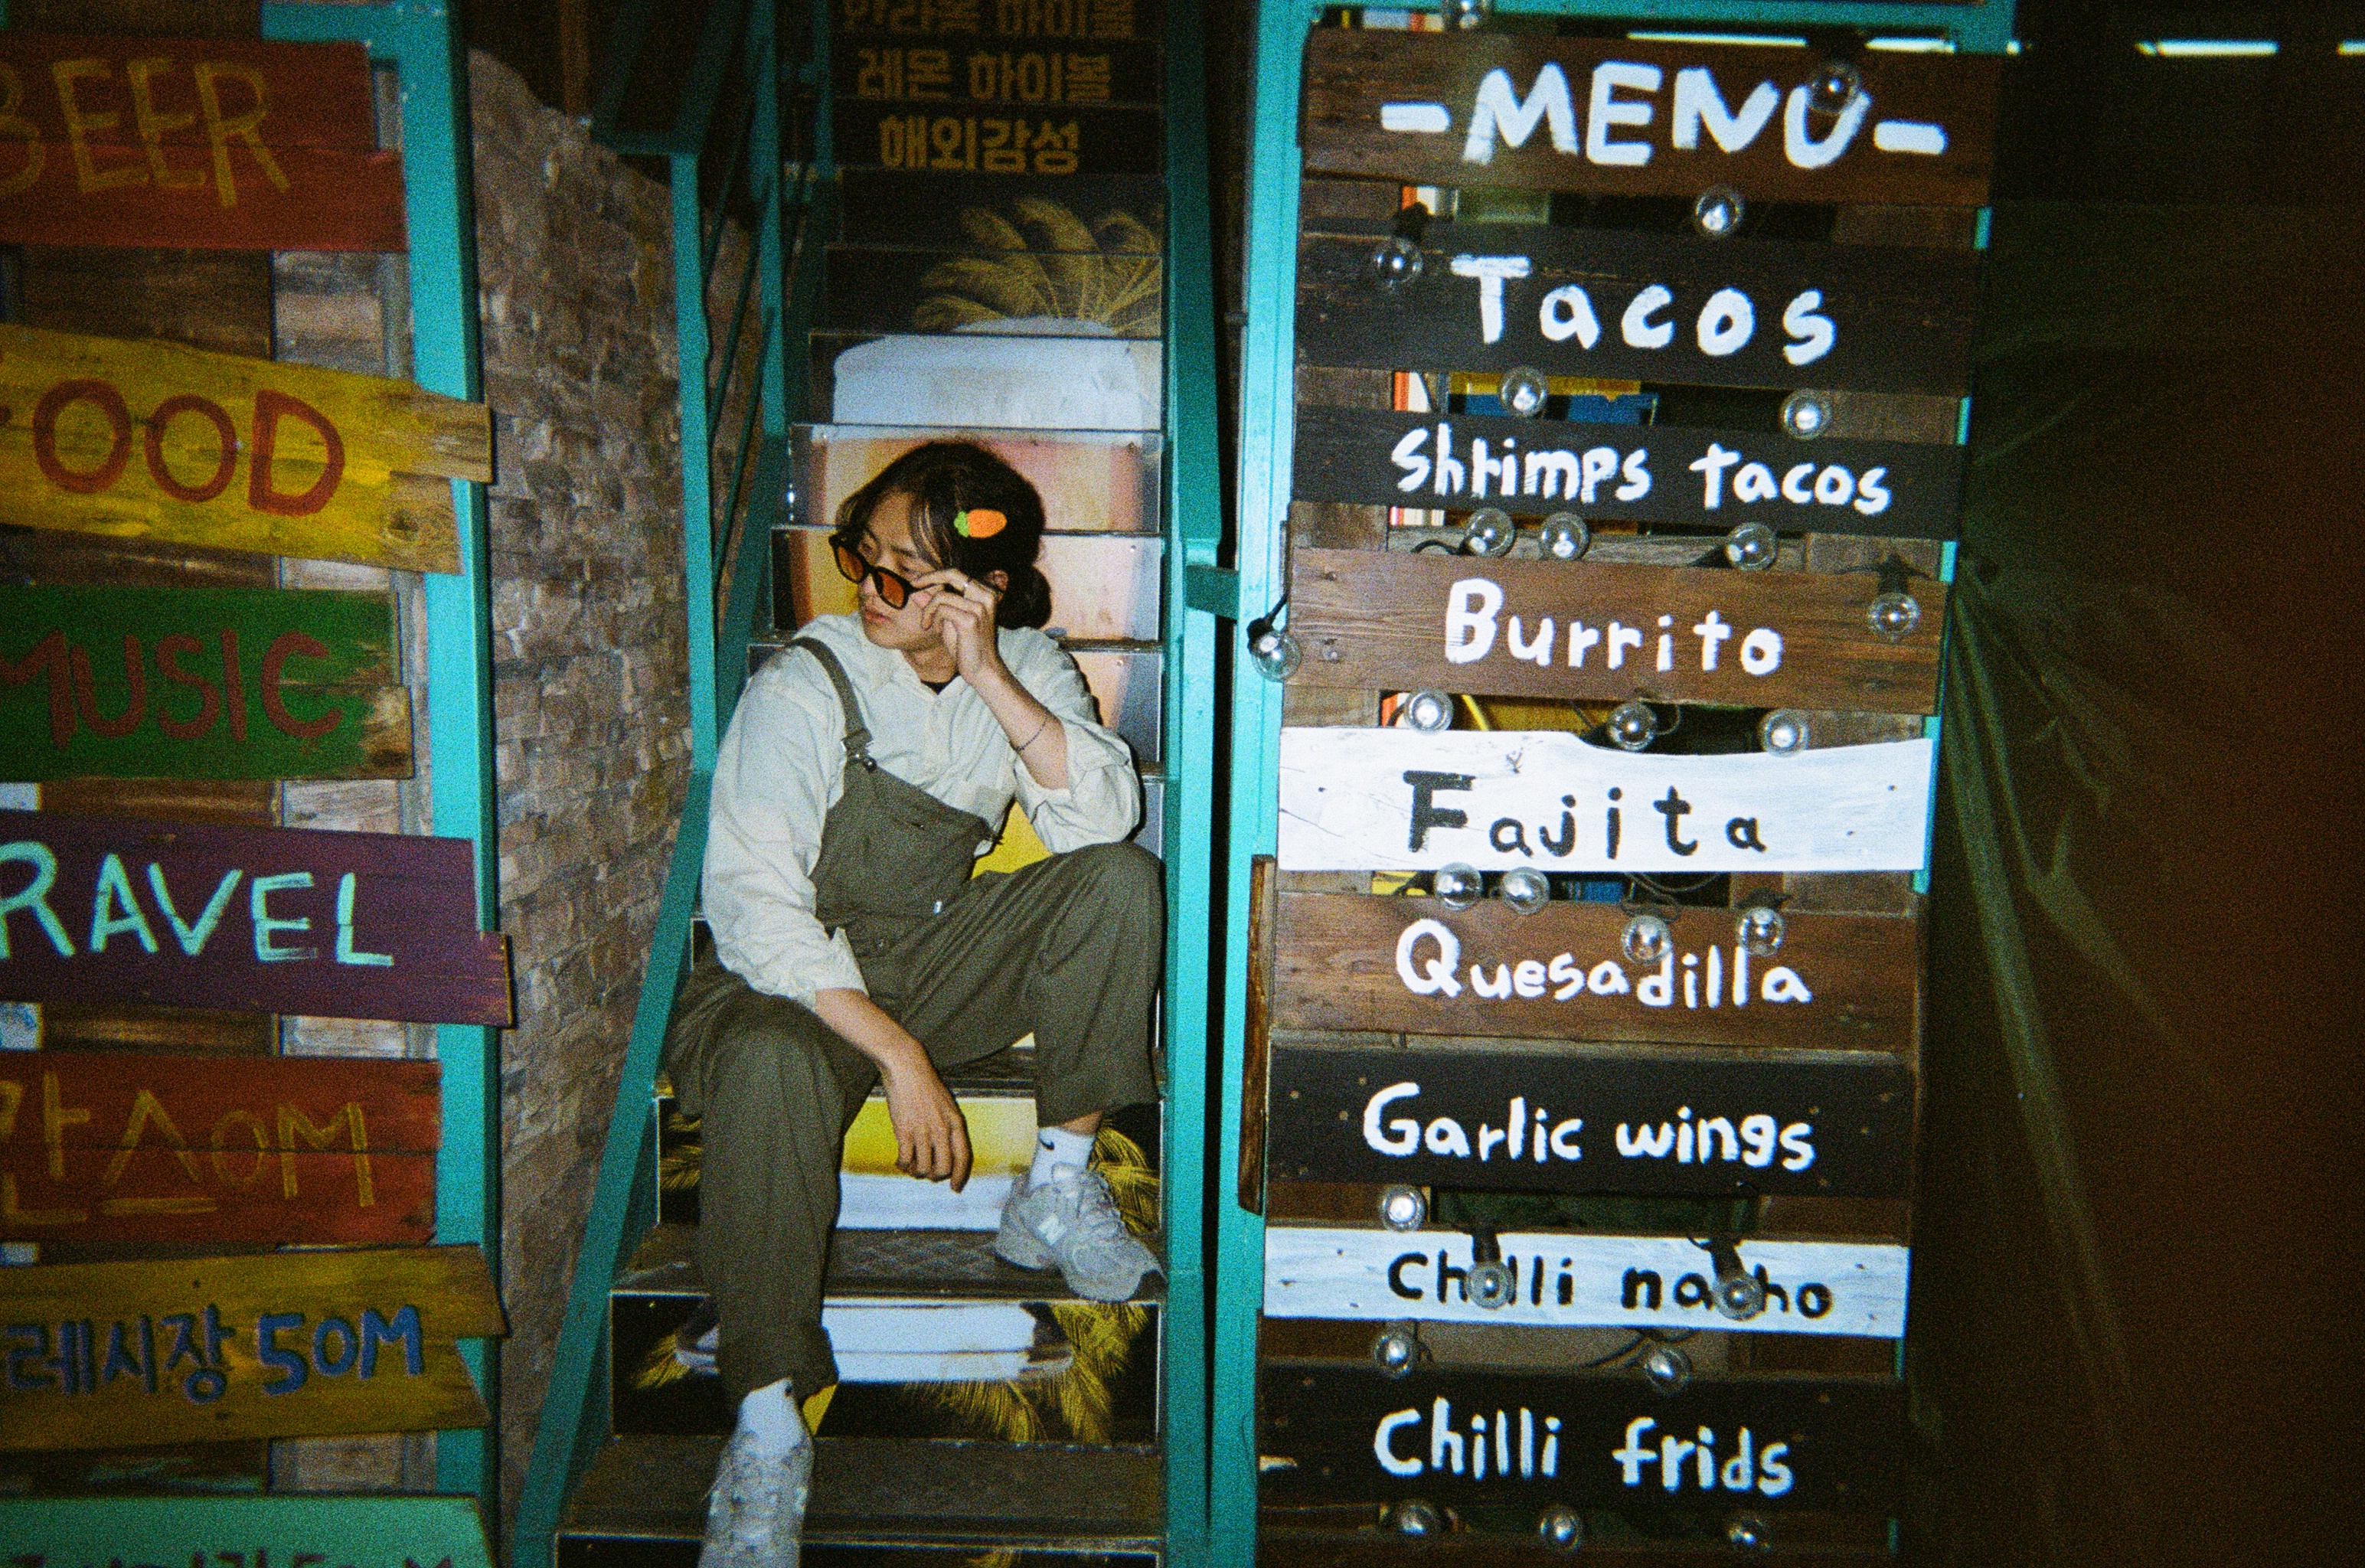 BEER
FOOD
MUSIC
RAVEL
50M
레시장 50M
레몬 하이볼
해외감성
-MENU-
Tacos
shrimps tacos
Burrito
Fajita
Quesadilla
Garlic wings
Chilli nacho
Chilli frids